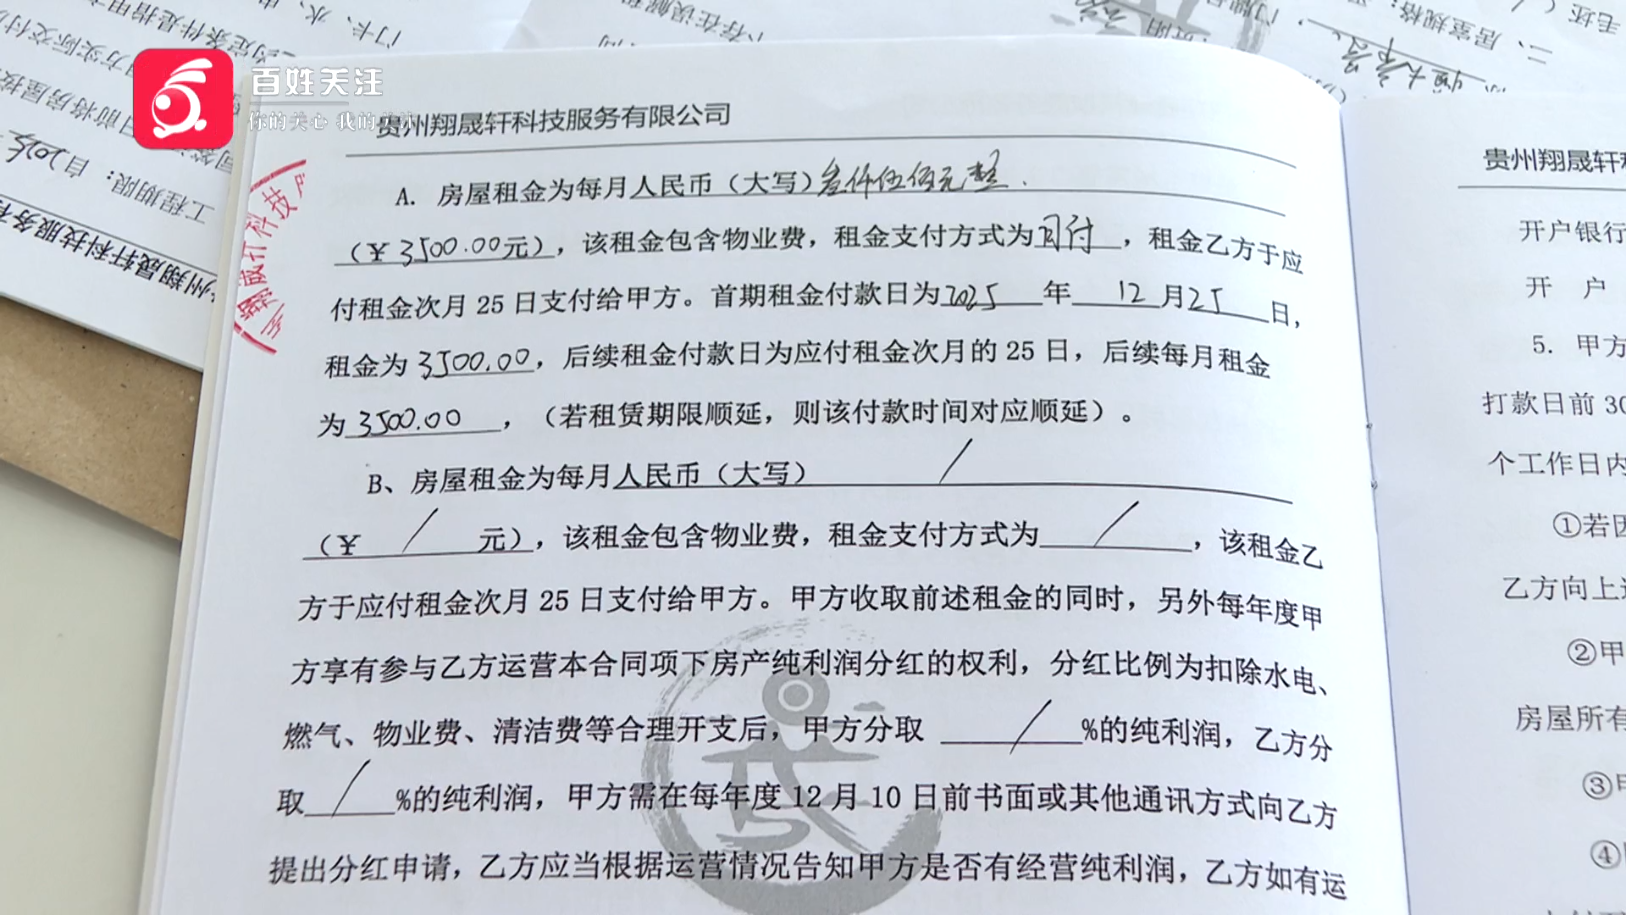 百姓关注
你的关心 我的
贵州翔晟轩科技服务有限公司
A. 房屋租金为每月人民币（大写）叁仟伍佰元整.
（¥3500.00元），该租金包含物业费，租金支付方式为月付，租金乙方于应
付租金次月 25 日支付给甲方。首期租金付款日为2025年12月25日，
租金为 3500.00，后续租金付款日为应付租金次月的 25 日，后续每月租金
为3500.00，（若租赁期限顺延，则该付款时间对应顺延）。
B、房屋租金为每月人民币（大写） /
（¥ / 元），该租金包含物业费，租金支付方式为 / ，该租金乙
方于应付租金次月 25 日支付给甲方。甲方收取前述租金的同时，另外每年度甲
方享有参与乙方运营本合同项下房产纯利润分红的权利，分红比例为扣除水电、
燃气、物业费、清洁费等合理开支后，甲方分取 / %的纯利润，乙方分
取 / %的纯利润，甲方需在每年度 12 月 10 日前书面或其他通讯方式向乙方
提出分红申请，乙方应当根据运营情况告知甲方是否有经营纯利润，乙方如有运
贵州翔晟轩科
开户银行
开 户
5. 甲方
打款日前 30
个工作日内
①若因
乙方向上
②甲
房屋所有
③甲
④
工程期限：自2025
州翔晟轩科技服务有
二、居室规格：
毛坯（
门卡、水、
不存在误解